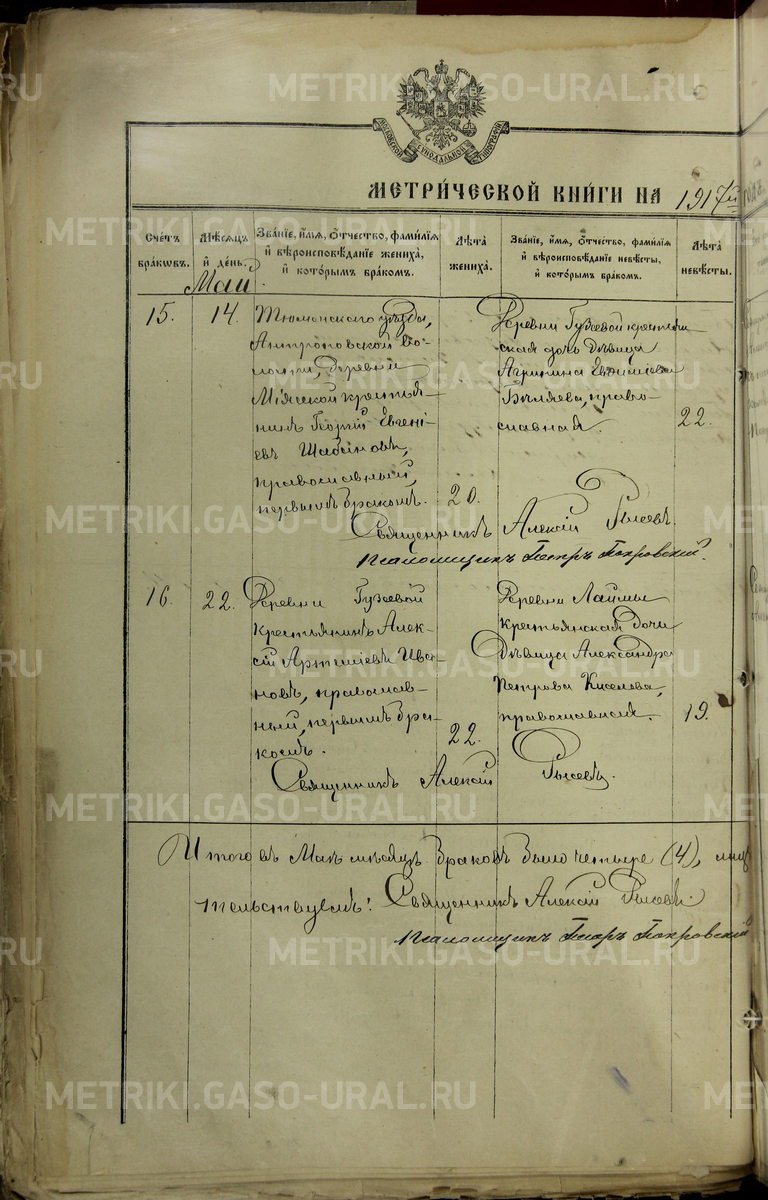 METRIKI.GASO-URAL.RU
МОСКОВСКОЙ СѴНОДАЛЬНОЙ ТИПОГРАФІИ
МЕТРИ́ЧЕСКОЙ КНИ́ГИ НА 1917й
Сче́тъ бра́ковъ.
Мѣ́сяцъ и҆ де́нь.
Зва́нїе, и҆́мѧ, ѻ҆́тчество, фами́лїѧ и҆ вѣроисповѣ́данїе жениха̀, и҆ кото́рымъ бра́комъ.
Лѣ́та жениха̀.
Зва́нїе, и҆́мѧ, ѻ҆́тчество, фами́лїѧ и҆ вѣроисповѣ́данїе невѣ́сты, и҆ кото́рымъ бра́комъ.
Лѣ́та невѣ́сты.
Май
15. 14.
Тюменскаго уѣзда,
Антроповской во-
лости, деревни
Міясской крестья-
нинъ Георгій Евгені-
евъ Шабановъ,
православный,
первымъ бракомъ.
20.
Деревни Гузеевой крестьян-
ская дочь дѣвица
Агрипина
Бѣляева, право-
славная.
22.
Священникъ Алексій Рысевъ.
Псаломщикъ Петръ Покровский.
16. 22.
Деревни Гузеевой
крестьянинъ Алек-
сій Артеміевъ Ива-
новъ, православ-
ный, первымъ бра-
комъ.
22.
Деревни Лаймы
крестьянская дочь
дѣвица Александра
Петрова Киселева,
православная.
19.
Священникъ Алексій Рысевъ.
Итого въ Маѣ мѣсяцѣ браковъ было четыре (4),
тельствуемъ: Священникъ Алексій Рысевъ.
Псаломщикъ Петръ Покровский